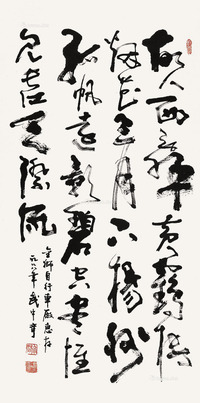 故人西辞黄鶴楼
烟花三月下揚州
孤帆遠影碧空尽惟
見長江天際流
金獅自行車廠惠存
一九八六年武中奇